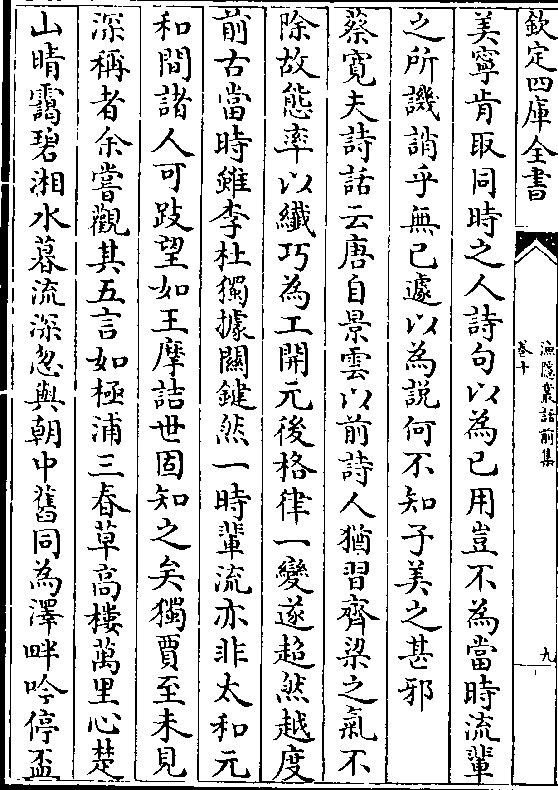 欽定四庫全書
漁隱叢話前集
卷十
九
美寧肯取同時之人詩句以為己用豈不為當時流輩
之所譏誚乎無己遽以為説何不知子美之甚邪
蔡寛夫詩話云唐自景雲以前詩人猶習齊梁之氣不
除故態率以纎巧為工開元後格律一變遂超然越度
前古當時雖李杜獨據闗鍵然一時輩流亦非太和元
和間諸人可跂望如王摩詰世固知之矣獨賈至未見
深稱者余嘗觀其五言如極浦三春草高樓萬里心楚
山晴靄碧湘水暮流深忽與朝中舊同為澤畔吟停盃